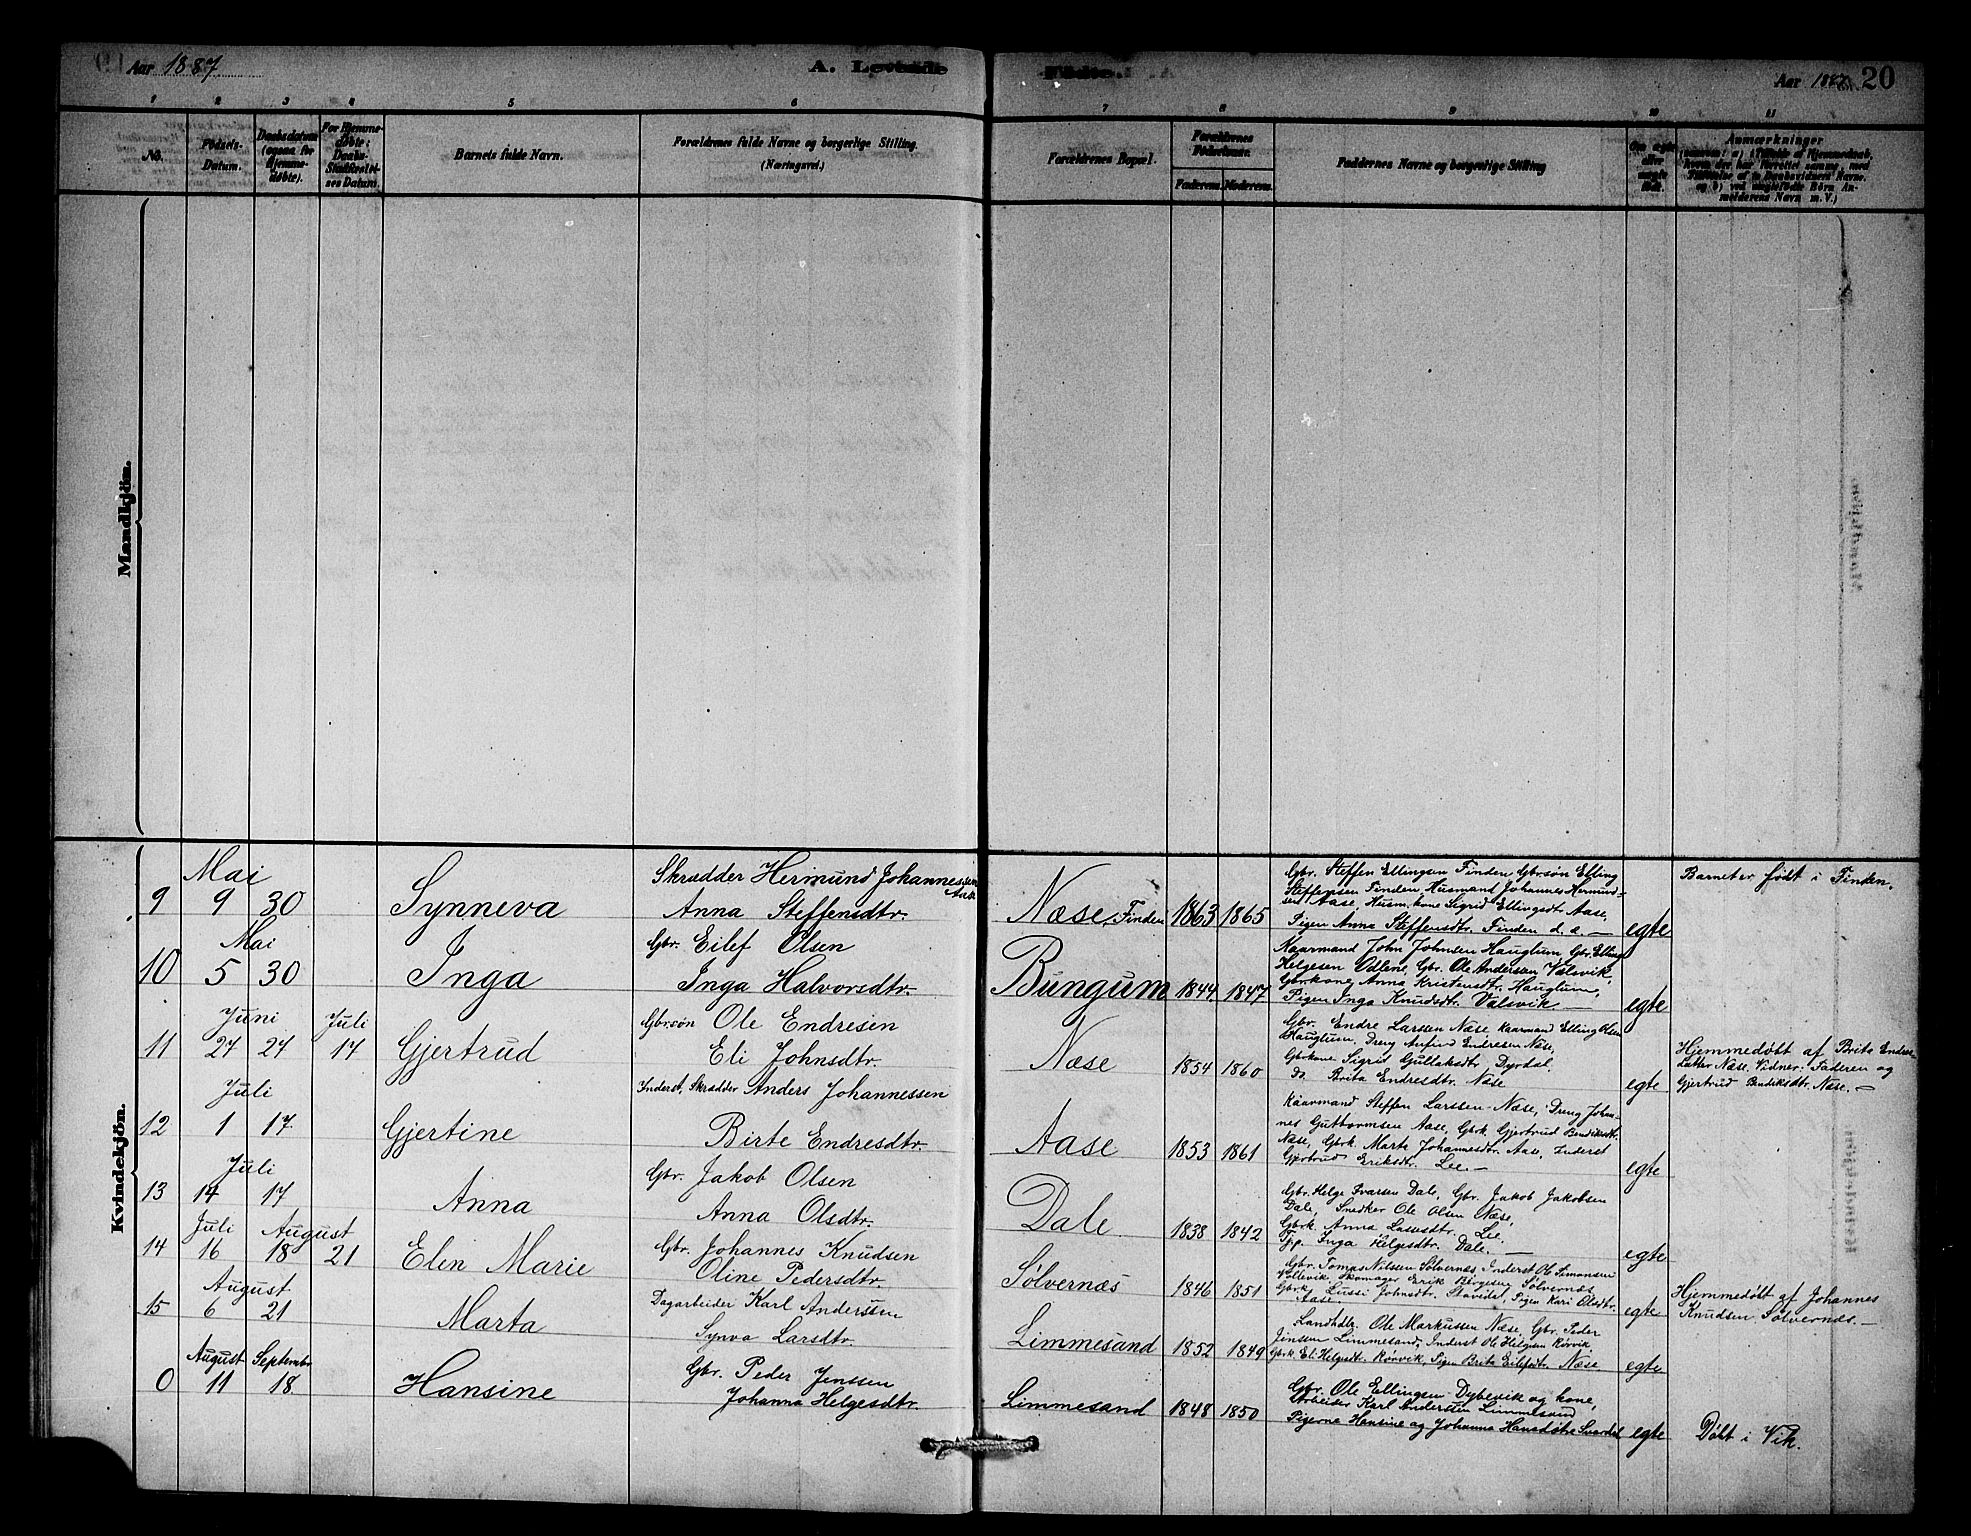 Aar 1887
A. Levende
Fødte.
Aar 1887
20
1 2 3 4 5 6 7 8 9 10 11
No.
Födsels-
Datum.
Daabsdatum
(ogsaa for
Hjemme-
døbte).
For Hjemme-
døbte:
Daabs-
Stadfæstel-
ses Datum.
Barnets fulde Navn.
Forældrenes fulde Navne og borgerlige Stilling.
(Næringsvei.)
Forældrenes Bopæl.
Forældrenes
Födselsaar.
Faderens. Moderens.
Faddernes Navne og borgerlige Stilling
Om ægte
eller
uægte
født.
Anmærkninger
Mandkjön.
Kvindekjön.
Mai
9 9 30
Synneva
Skrædder Hermund Johannessen
Aase
Anna Steffensdtr.
Næse, Finden
1863 1865
Gbr. Steffen Ellingsen Finden Gbrsøn Elling
Steffensen Finden, Husmand Johannes Hermund-
sen Aase, Husm. kone Sigrid Ellingsdtr Aase,
Pigen Anna Steffensdtr. Finden d. a. —
egte
Barnet er født i Finden.
Mai
10 5 30
Inga
Gbr. Eilef Olsen
Inga Halvorsdtr.
Bungum
1844 1847
Kaarmand John Johnsen Hauglum, Gbr. Elling
Helgesen Odlene, Gbr. Ole Andersen Valsvik,
Gbrkone Anna Kristensdtr. Hauglum,
Pigen Inga Knudsdtr. Valsvik. —
egte
Juni Juli
11 24 24 17
Gjertrud
Gbrsøn Ole Endresen
Eli Johnsdtr.
Næse
1854 1860
Gbr. Endre Larssen Næse, Kaarmand Elling Olsen
Hauglum, Dreng Endresen Næse,
Gbrkone Sigrid Gullaksdtr Dyrdal,
do. Brita Endresdtr. Næse
egte
Hjemmedøbt af Brita Endres-
datter Næse, Vidner: Faderen og
Gjertrud Bendiksdtr. Næse. —
Juli
12 1 17
Gjertine
Inderst, Skrædder Anders Johannessen
Birte Endresdtr.
Aase
1853 1861
Kaarmand Steffen Larssen Næse, Dreng Johan-
nes Guttormsen Aase, Gbrk. Gjertrud Bendiksdtr.
Næse, Gbrk. Marta Johannesdtr. Aase, Inderst
Gjertrud Eriksdtr. Lee. —
egte
Juli
13 14 17
Anna
Gbr. Jakob Olsen
Anna Olsdtr.
Dale
1838 1842
Gbr. Helge Ivarsen Dale, Gbr. Jakob Jakobsen
Dale, Snedker Ole Olsen Næse,
Gbrk. Anna Lassesdtr. Lee,
Tjp. Inga Helgesdtr. Dale. —
egte
Juli August
14 16 18 21
Elen Marie
Gbr. Johannes Knudsen
Oline Pedersdtr.
Sølvernæs
1846 1851
Gbr. Tomas Nilssen Sølvernæs, Inderst Ole Simonsen
Vallevik, Skomager Erik Børgesen Sølvernæs,
Gbrk. Lussi Johnsdtr. Stavedal, Pigen Kari Olsdtr.
Aase.
egte
Hjemmedøbt af Johannes
Knudsen Sølvernæs. —
August
15 6 21
Marta
Dagarbeider Karl Andersen
Synva Larsdtr.
Limmesand
1852 1849
Landhdlr. Ole Markussen Næse, Gbr. Peder
Jenssen Limmesand, Inderst Ole Helgesen Rørvik,
Gbrk. Eli Helgesdtr. Rørvik, Pigen Brita Eilefsdtr. Næse
egte
August September
0 11 18
Hansine
Gbr. Peder Jenssen
Johanna Helgesdtr.
Limmesand
1848 1850
Gbr. Ole Ellingsen Dybevik og kone,
Arbeider Karl Andersen Limmesand
Pigerne Hansine og Johanna Hansdøtre Svardal
egte
Døbt i Vik.